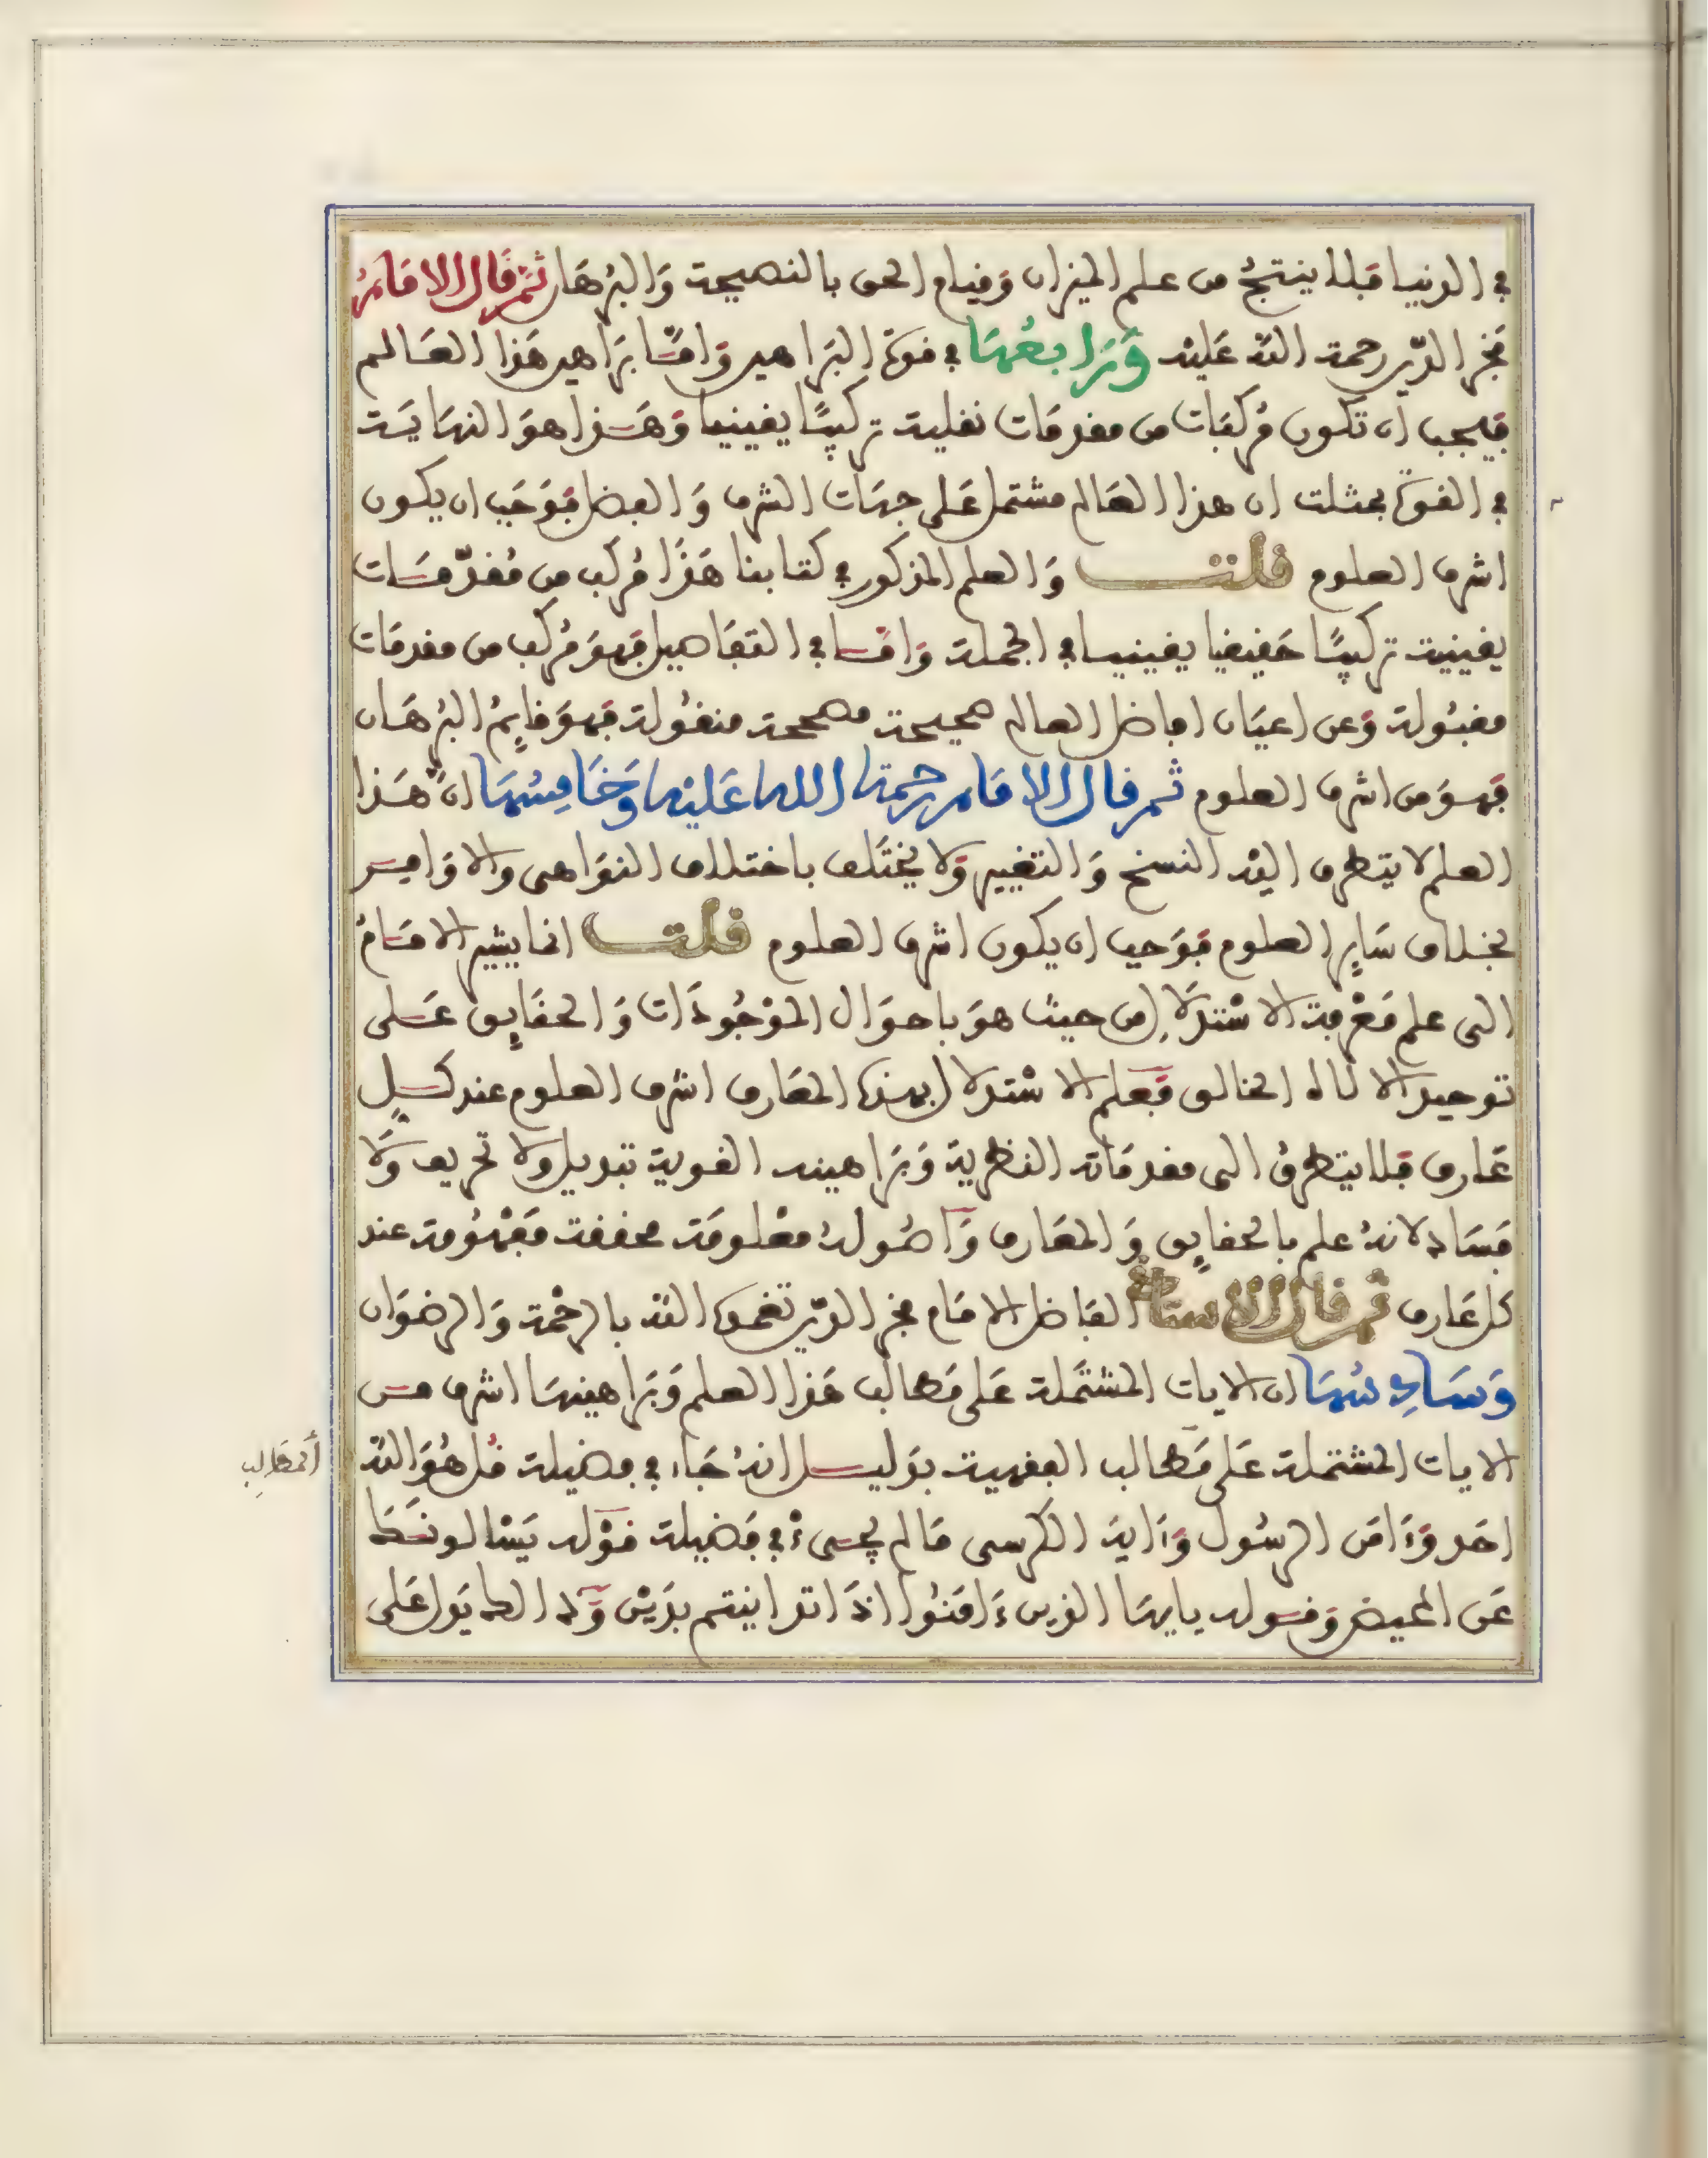 في الدنيا فبلا ينتج من علم الميزان وقيام الحق بالنصيحة والبرهان ثم قال الامام
فخر الدين رحمة الله عليه ورابعها في قوة البراهين واما براهين هذا العالم
فيجب ان تكون مركبات من مقدمات نقلية تركيبًا يقينيا وهذا هو النهاية
في القوة فمثلت ان هذا العالم مشتمل على جهات الشرف والفضل فوجب ان يكون
اشرف العلوم قلت والعلم المذكور في كتابنا هذا مركب من مقدّمات
يقينية تركيبًا حقيقيا يقينيا في الجملة واما في التفاصيل فهو مركب من مقدمات
مقبولة وعن اعيان افاضل العالم صحيحة مصححة منقولة فهو قايم البرهان
فهو من اشرف العلوم ثم قال الامام رحمة الله عليه وخامسها انّ هذا
العلم لا يتطرف اليه النسخ والتغيير ولا يختلف باختلاف النواهى والاوامر
بخلاف ساير العلوم فوجب ان يكون اشرف العلوم قلت انما يشير الامام
الى علم معرفة الاستدلال من حيث هو باحوال الموجودات والحقايق على
توحيد الالاه الخالق فعلم الاستدلال بهذه المعارف اشرف العلوم عند كل
عارف فلا يتطرق الى مقدماته النظرية وبراهينه القوية تبديل ولا تحريف ولا
فساد لانه علم بالحقايق والمعارف واصوله معلومة محققة مفهومة عند
كل عارف ثم قال الاستاذ الفاضل الامام فخر الدين تغمده الله بالرحمة والرضوان
وسادسها ان الايات المشتملة على مطالب هذا العلم وبراهينها اشرف من
الايات المشتملة على مطالب الفقهية بدليل انه جاء في فضيلة قل هو الله
احد وءامن الرسول وءاية الكرسى ما لم يجىء في فضيلة قوله يسالونك
عن المحيض وقوله يايها الذين ءامنوا اذا تداينتم بدين
المطالب